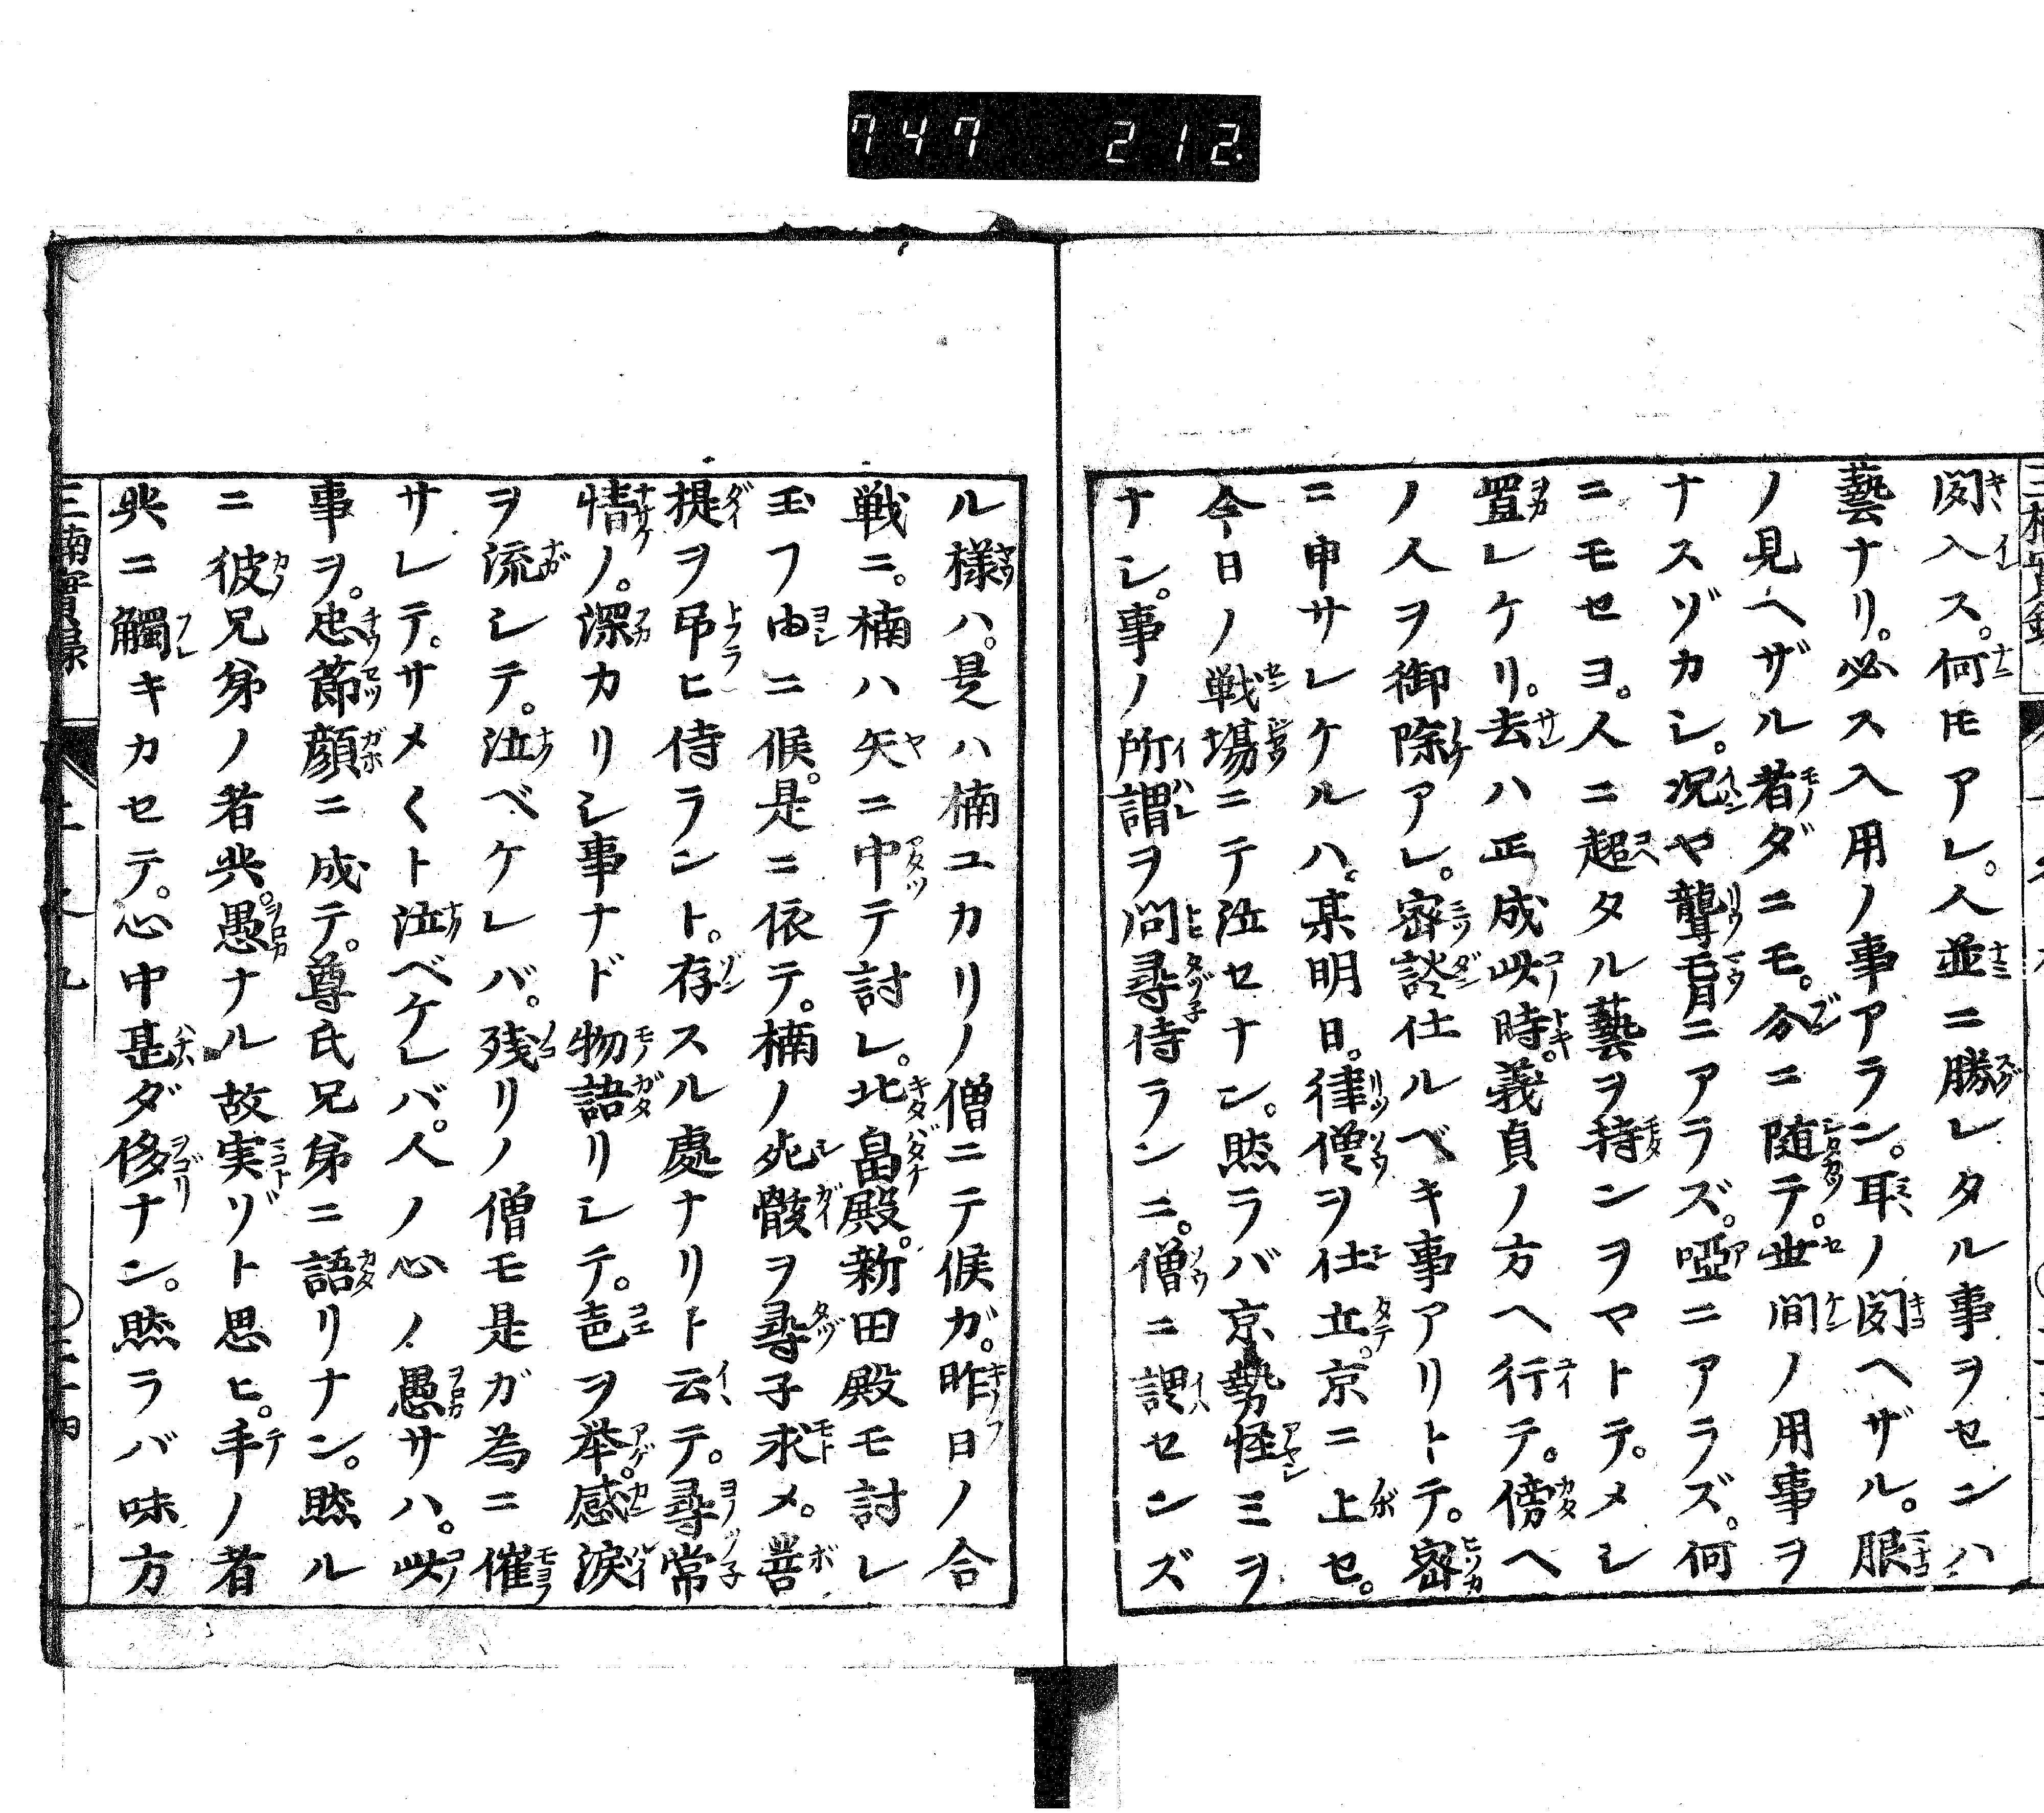 747 212.
聞入ス。何モアレ。人並ニ勝レタル事ヲセンハ
藝ナリ。必ス入用ノ事アラン。耳ノ聞ヘザル。眼
ノ見ヘザル者ダニモ。分ニ随テ。世間ノ用事ヲ
ナスゾカシ。况ヤ聾盲ニアラズ。啞ニアラズ。何
ニモセヨ。人ニ超タル藝ヲ持ンヲマトテ。メシ
置レケリ。去ハ正成此時。義貞ノ方ヘ行テ。傍ヘ
ノ人ヲ御除アレ。密談仕ルベキ事アリトテ。密
ニ申サレケルハ。某明日。律僧ヲ仕立。京ニ上セ。
今日ノ戦場ニテ泣セナン。然ラバ京勢怪ミヲ
ナシ。事ノ所謂ヲ問尋侍ランニ。僧ニ謂センズ
ル様ハ。是ハ楠ユカリノ僧ニテ候ガ。昨日ノ合
戦ニ。楠ハ矢ニ中テ討レ。北畠殿。新田殿モ討レ
玉フ由ニ候。是ニ依テ。楠ノ死骸ヲ尋子求メ。菩
提ヲ吊ヒ侍ラント。存スル處ナリト云テ。尋常
情ノ。深カリシ事ナド物語リシテ。声ヲ举。感涙
ヲ流シテ。泣ベケレバ。残リノ僧モ是ガ為ニ催
サレテ。サメ〱ト泣ベケレバ。人ノ心ノ愚サハ。此
事ヲ。忠節顔ニ成テ。尊氏兄弟ニ語リナン。然ル
ニ彼兄弟ノ者共。愚ナル故実ゾト思ヒ。手ノ者
共ニ觸キカセテ。心中甚ダ侈ナン。然ラバ味方
三楠實録 上之九